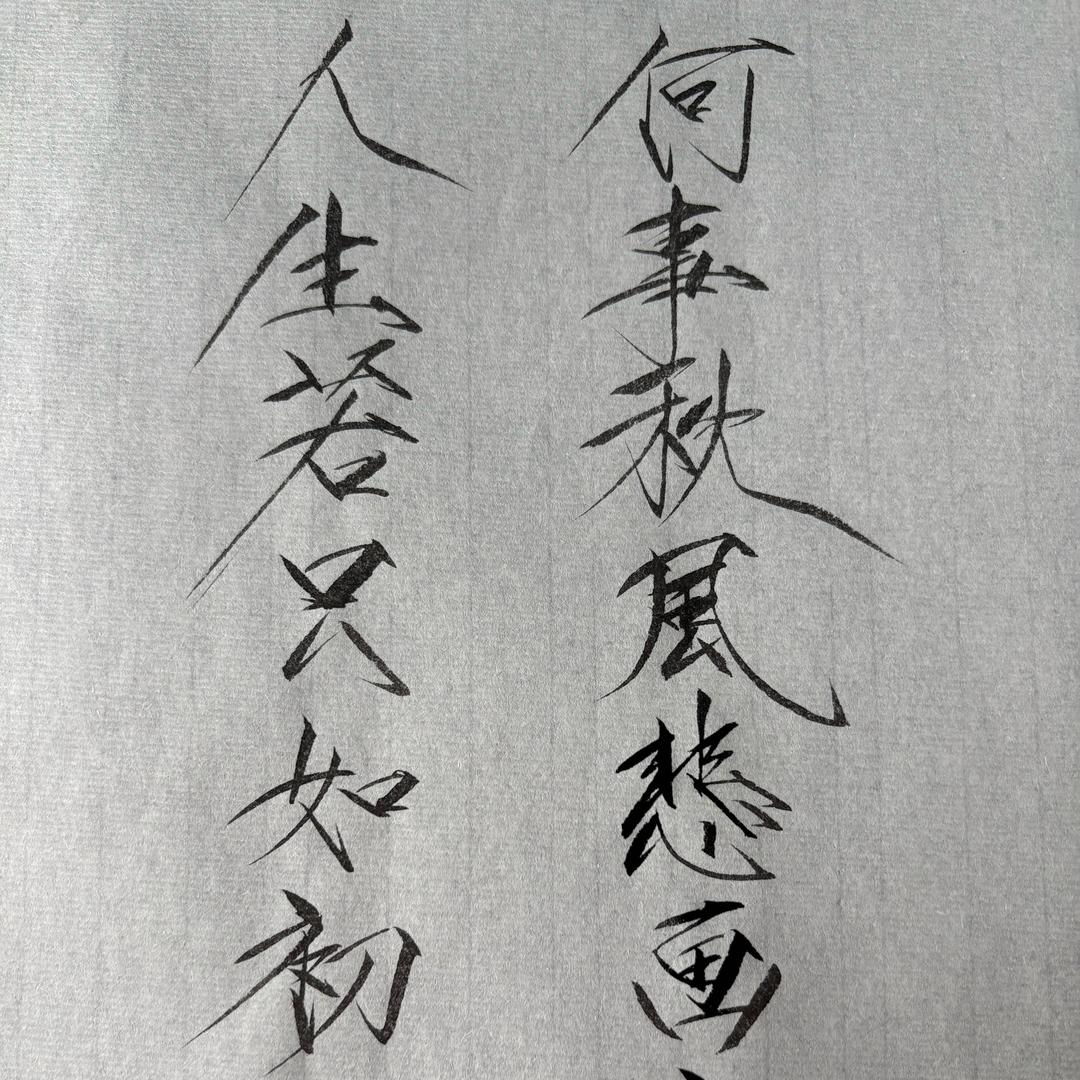 人生若只如初
何事秋風悲画